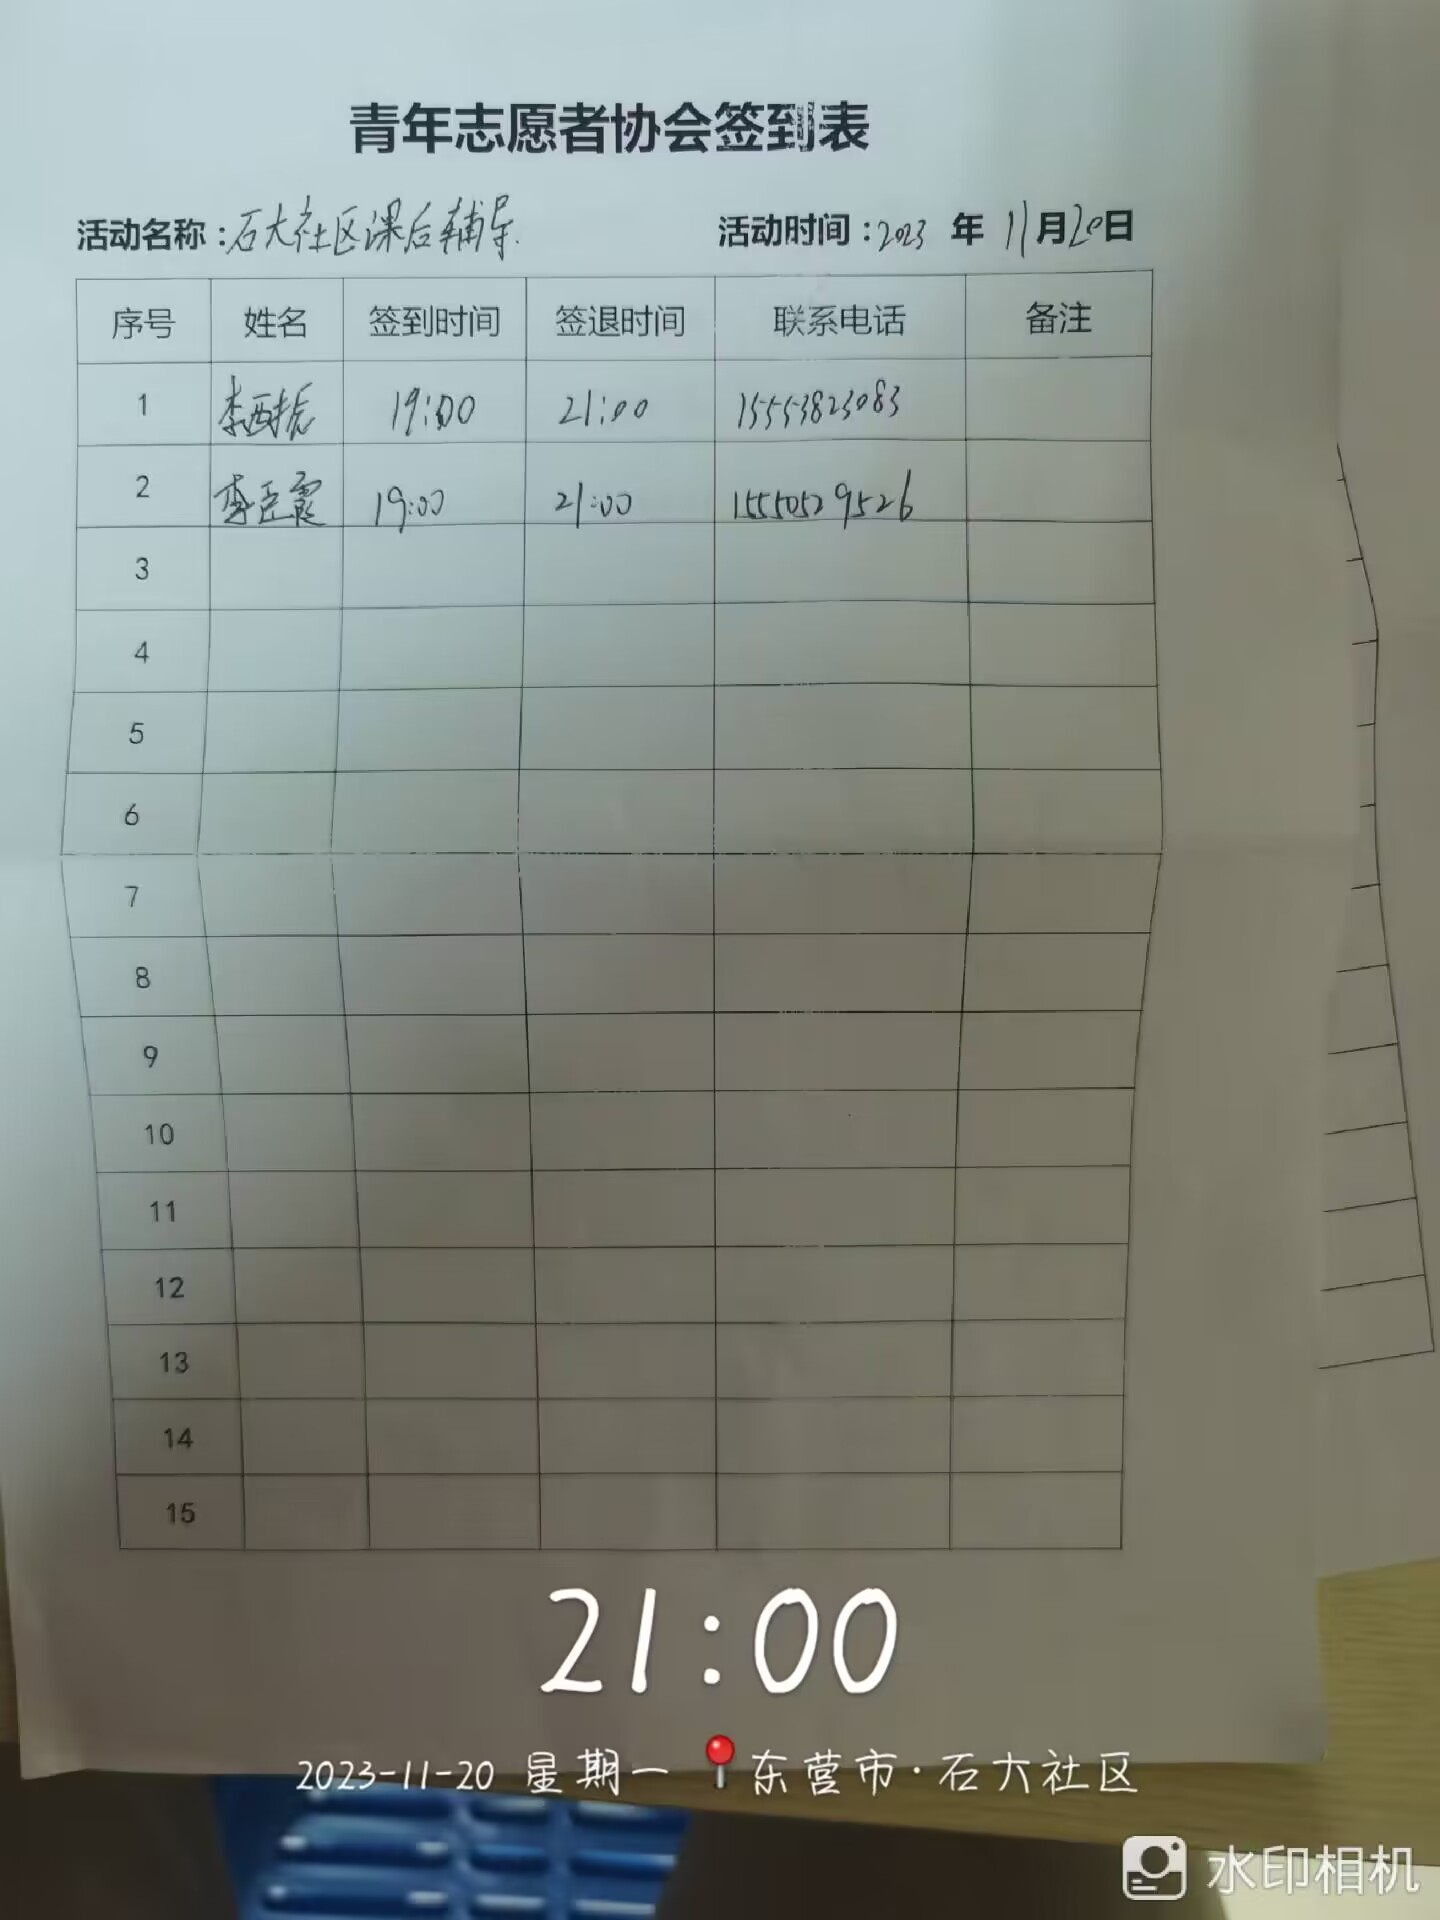 青年志愿者协会签到表
活动名称:石大社区课后辅导 活动时间:2023 年 11月20日
序号 姓名 签到时间 签退时间 联系电话 备注
1 19:00 21:00 15553823083
2 李臣霞 19:00 21:00 15550529526
3
4
5
6
7
8
9
10
11
12
13
14
15
21:00
2023-11-20 星期一 东营市·石大社区
水印相机